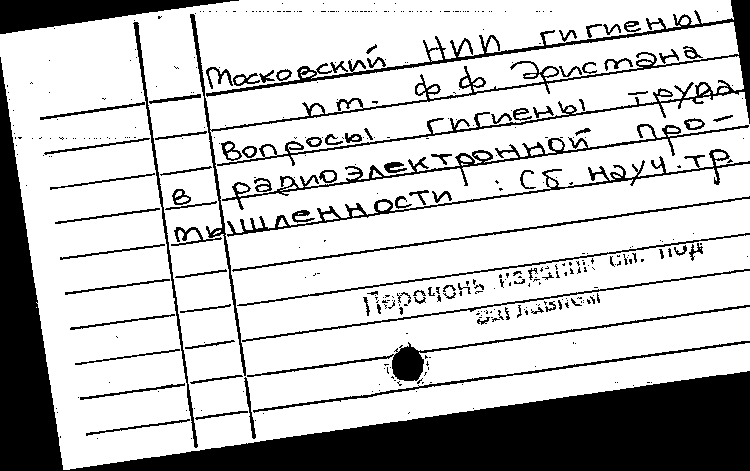 Московский НИИ гигиены
им. Ф.Ф. Эрисмана
Вопросы гигиены труда
в радиоэлектронной про-
мышленности : Сб. науч. тр
Перечень изданий см. под
заглавием